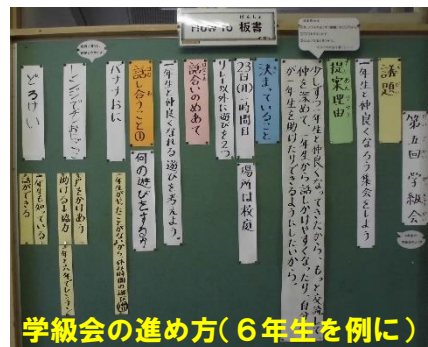 How to 板書
第五回 学級会
議題
一年生と仲良くなろう集会をしよう
提案理由
少しずつ一年生と仲良くなってきたから、もっと交流して
仲を深めて、一年生から話しかけやすくなったり、自分
が一年生を助けたりできるようにしたいから。
決まっていること
23日(月)一時間目
場所は校庭
リレー以外に遊びを2つ
話合いのめあて
一年生と仲良くなれる遊びを考えよう。
話し合うこと①
何の遊びをするか
バナナおに
どろけい
声をかけあう
助ける=協力
一年生も知っている
学級会の進め方(6年生を例に)